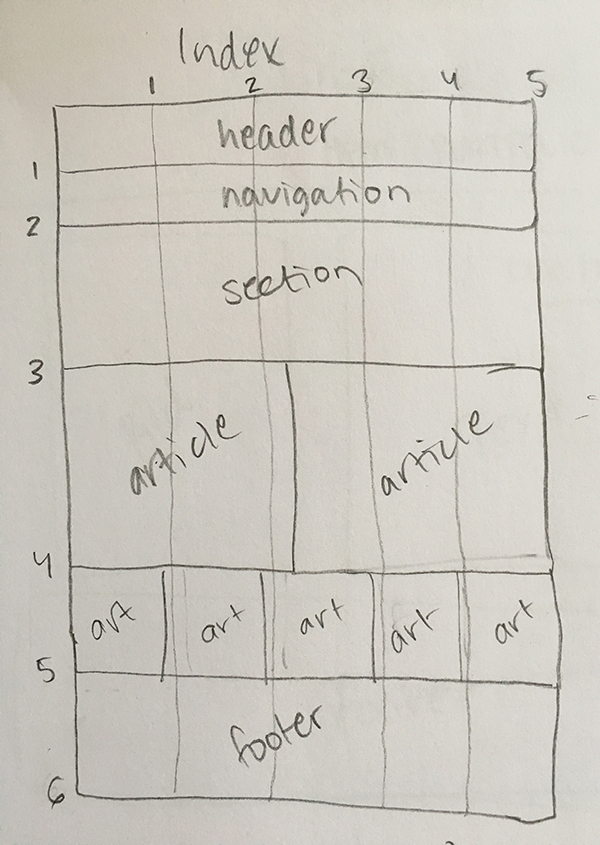 Index
1 2 3 4 5
header
1
navigation
2
section
3
article article
4
art art art art art
5
footer
6